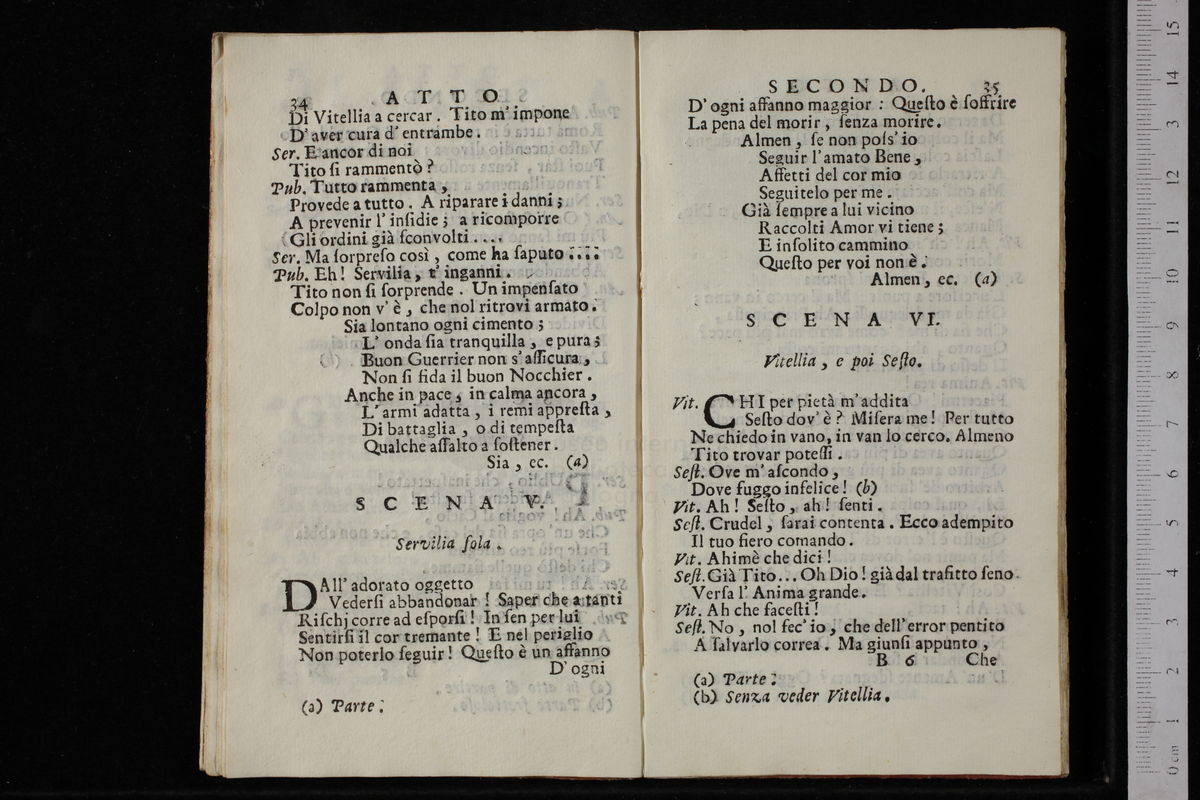 34 ATTO
Di Vitellia a cercar. Tito m' impone
D' aver cura d' entrambe.
Ser. E ancor di noi
Tito ſi rammentò?
Pub. Tutto rammenta,
Provede a tutto. A riparare i danni;
A prevenir l' inſidie; a ricomporre
Gli ordini già ſconvolti....
Ser. Ma ſorpreſo così, come ha ſaputo....
Pub. Eh! Servilia, t' inganni.
Tito non ſi ſorprende. Un impenſato
Colpo non v' è, che nol ritrovi armato.
Sia lontano ogni cimento;
L' onda ſia tranquilla, e pura;
Buon Guerrier non s' aſſicura,
Non ſi fida il buon Nocchier.
Anche in pace, in calma ancora,
L' armi adatta, i remi appreſta,
Di battaglia, o di tempeſta
Qualche aſſalto a ſoſtener.
Sia, ec. (a)
SCENA V.
Servilia ſola.
DAll' adorato oggetto
Vederſi abbandonar! Saper che a tanti
Riſchj corre ad eſporſi! In ſen per lui
Sentirſi il cor tremante! E nel periglio
Non poterlo ſeguir! Queſto è un affanno
D' ogni
(a) Parte.
SECONDO. 35
D' ogni affanno maggior: Queſto è ſoffrire
La pena del morir, ſenza morire.
Almen, ſe non poſs' io
Seguir l'amato Bene,
Affetti del cor mio
Seguitelo per me.
Già ſempre a lui vicino
Raccolti Amor vi tiene;
E inſolito cammino
Queſto per voi non è.
Almen, ec. (a)
SCENA VI.
Vitellia, e poi Seſto.
Vit. CHI per pietà m' addita
Seſto dov' è? Miſera me! Per tutto
Ne chiedo in vano, in van lo cerco. Almeno
Tito trovar poteſſi.
Seſt. Ove m' aſcondo,
Dove fuggo infelice! (b)
Vit. Ah! Seſto, ah! ſenti.
Seſt. Crudel, ſarai contenta. Ecco adempito
Il tuo fiero comando.
Vit. Ahimè che dici!
Seſt. Già Tito... Oh Dio! già dal trafitto ſeno
Verſa l' Anima grande.
Vit. Ah che faceſti!
Seſt. No, nol fec' io, che dell'error pentito
A ſalvarlo correa. Ma giunſi appunto,
B 6 Che
(a) Parte.
(b) Senza veder Vitellia.
0 cm 1 2 3 4 5 6 7 8 9 10 11 12 13 14 15